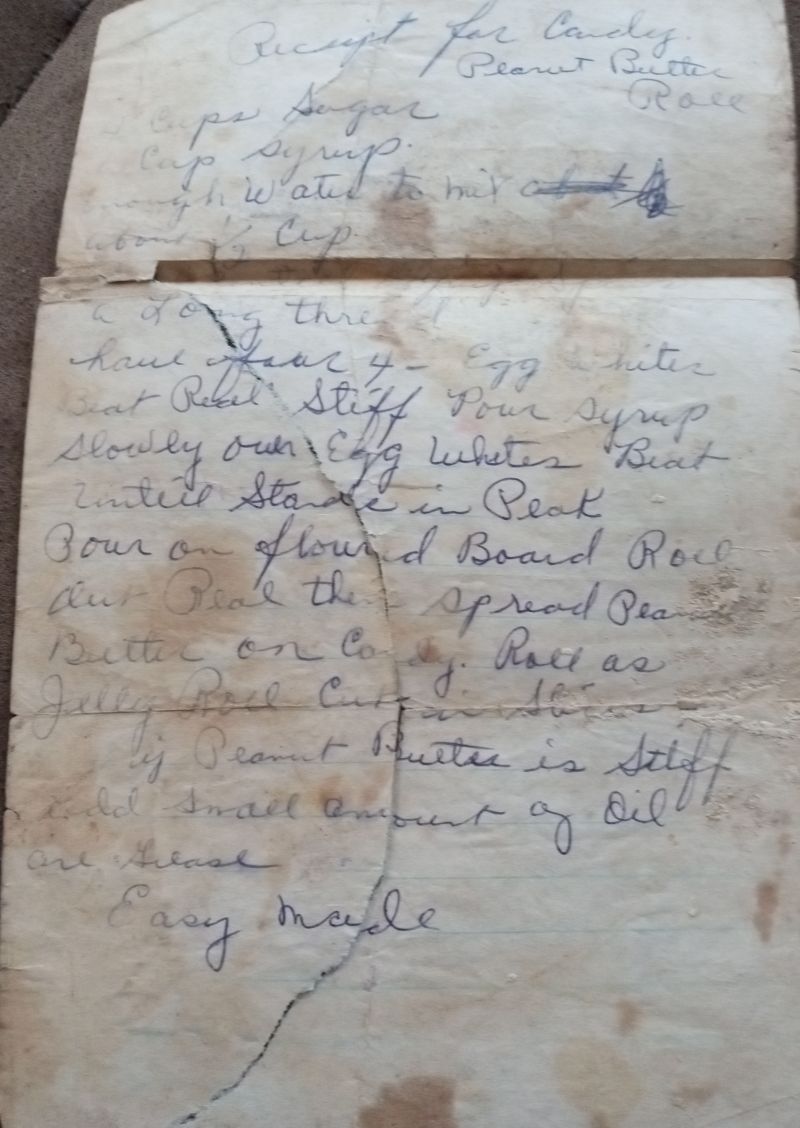 Receipt for Candy.
Peanut Butter
Roll
Cups Sugar
Cup Syrup.
enough Water to mix
about 1/2 Cup
a Long thre d
have four 4 - Egg Whites
Beat Real Stiff Pour Syrup
Slowly over Egg Whites Beat
untill Stands in Peak
Pour on flourd Board Roll
out Real then Spread Peanut
Butter on Candy. Roll as
Jelly Roll Cut in
if Peanut Butter is Stiff
add Small amount of Oil
are Grease
Easy Made